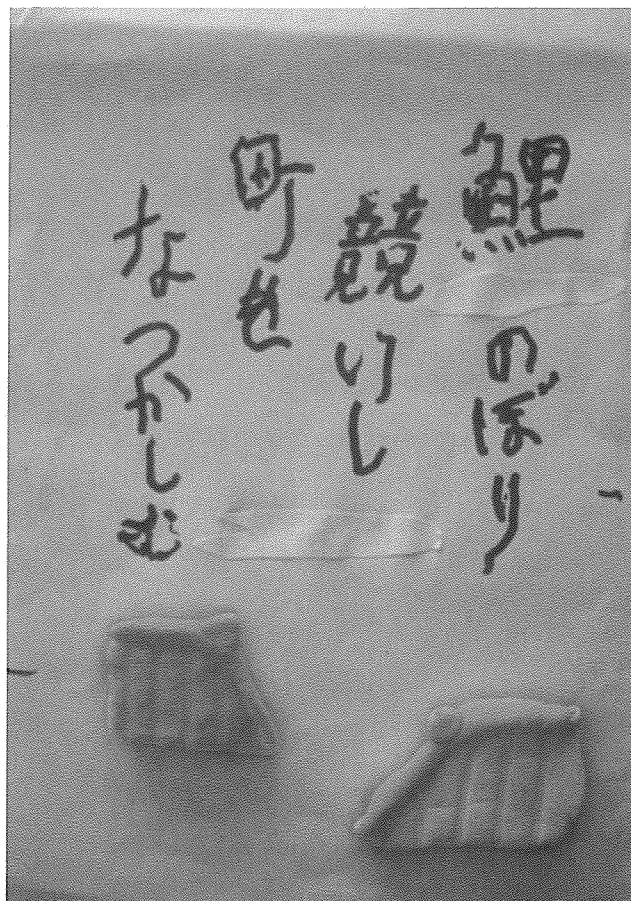 鯉のぼり
競いし
町を
なつかしむ